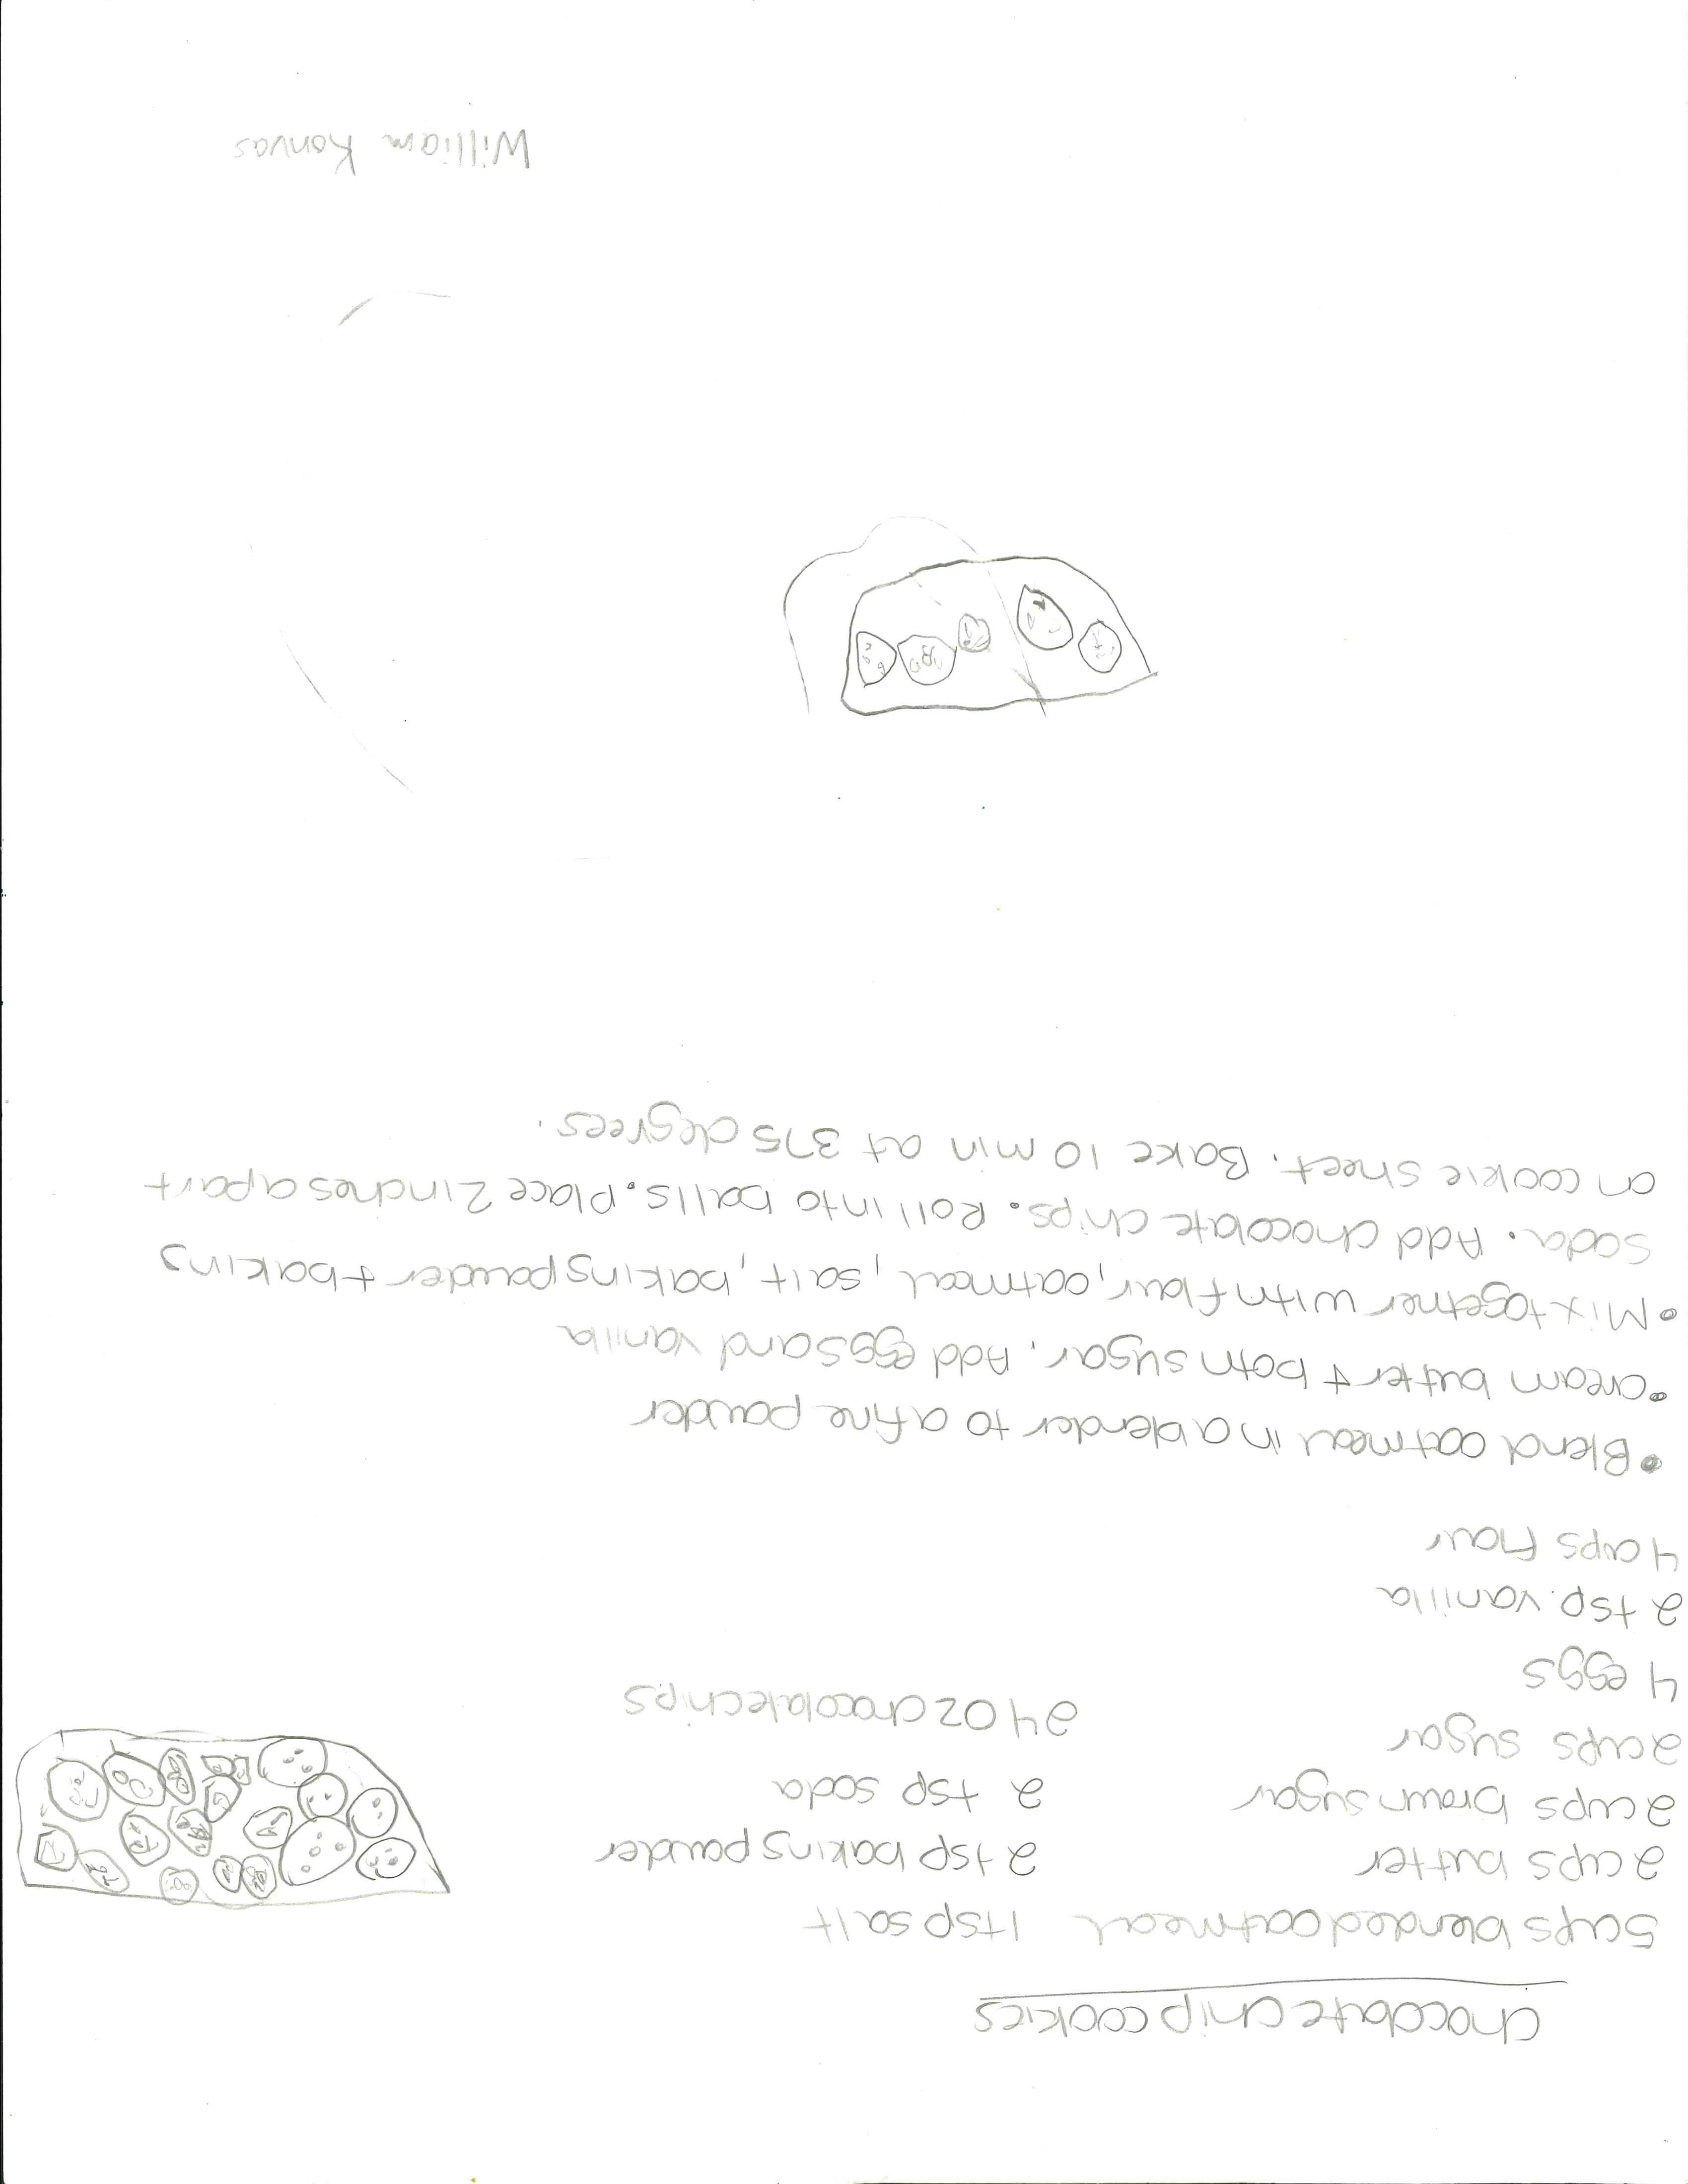 chocolate chip cookies
5 cups blended oatmeal 1 tsp salt
2 cups butter 2 tsp baking powder
2 cups brown sugar 2 tsp soda
2 cups sugar 24 oz chocolate chips
4 eggs
2 tsp. vanilla
4 cups flour
• Blend oatmeal in a blender to a fine powder
• cream butter + both sugar. Add eggs and vanilla
• Mix together with flour, oatmeal, salt, baking powder + baking
soda. Add chocolate chips. Roll into balls. Place 2 inches apart
on cookie sheet. Bake 10 min at 375 degrees.
William Konvas